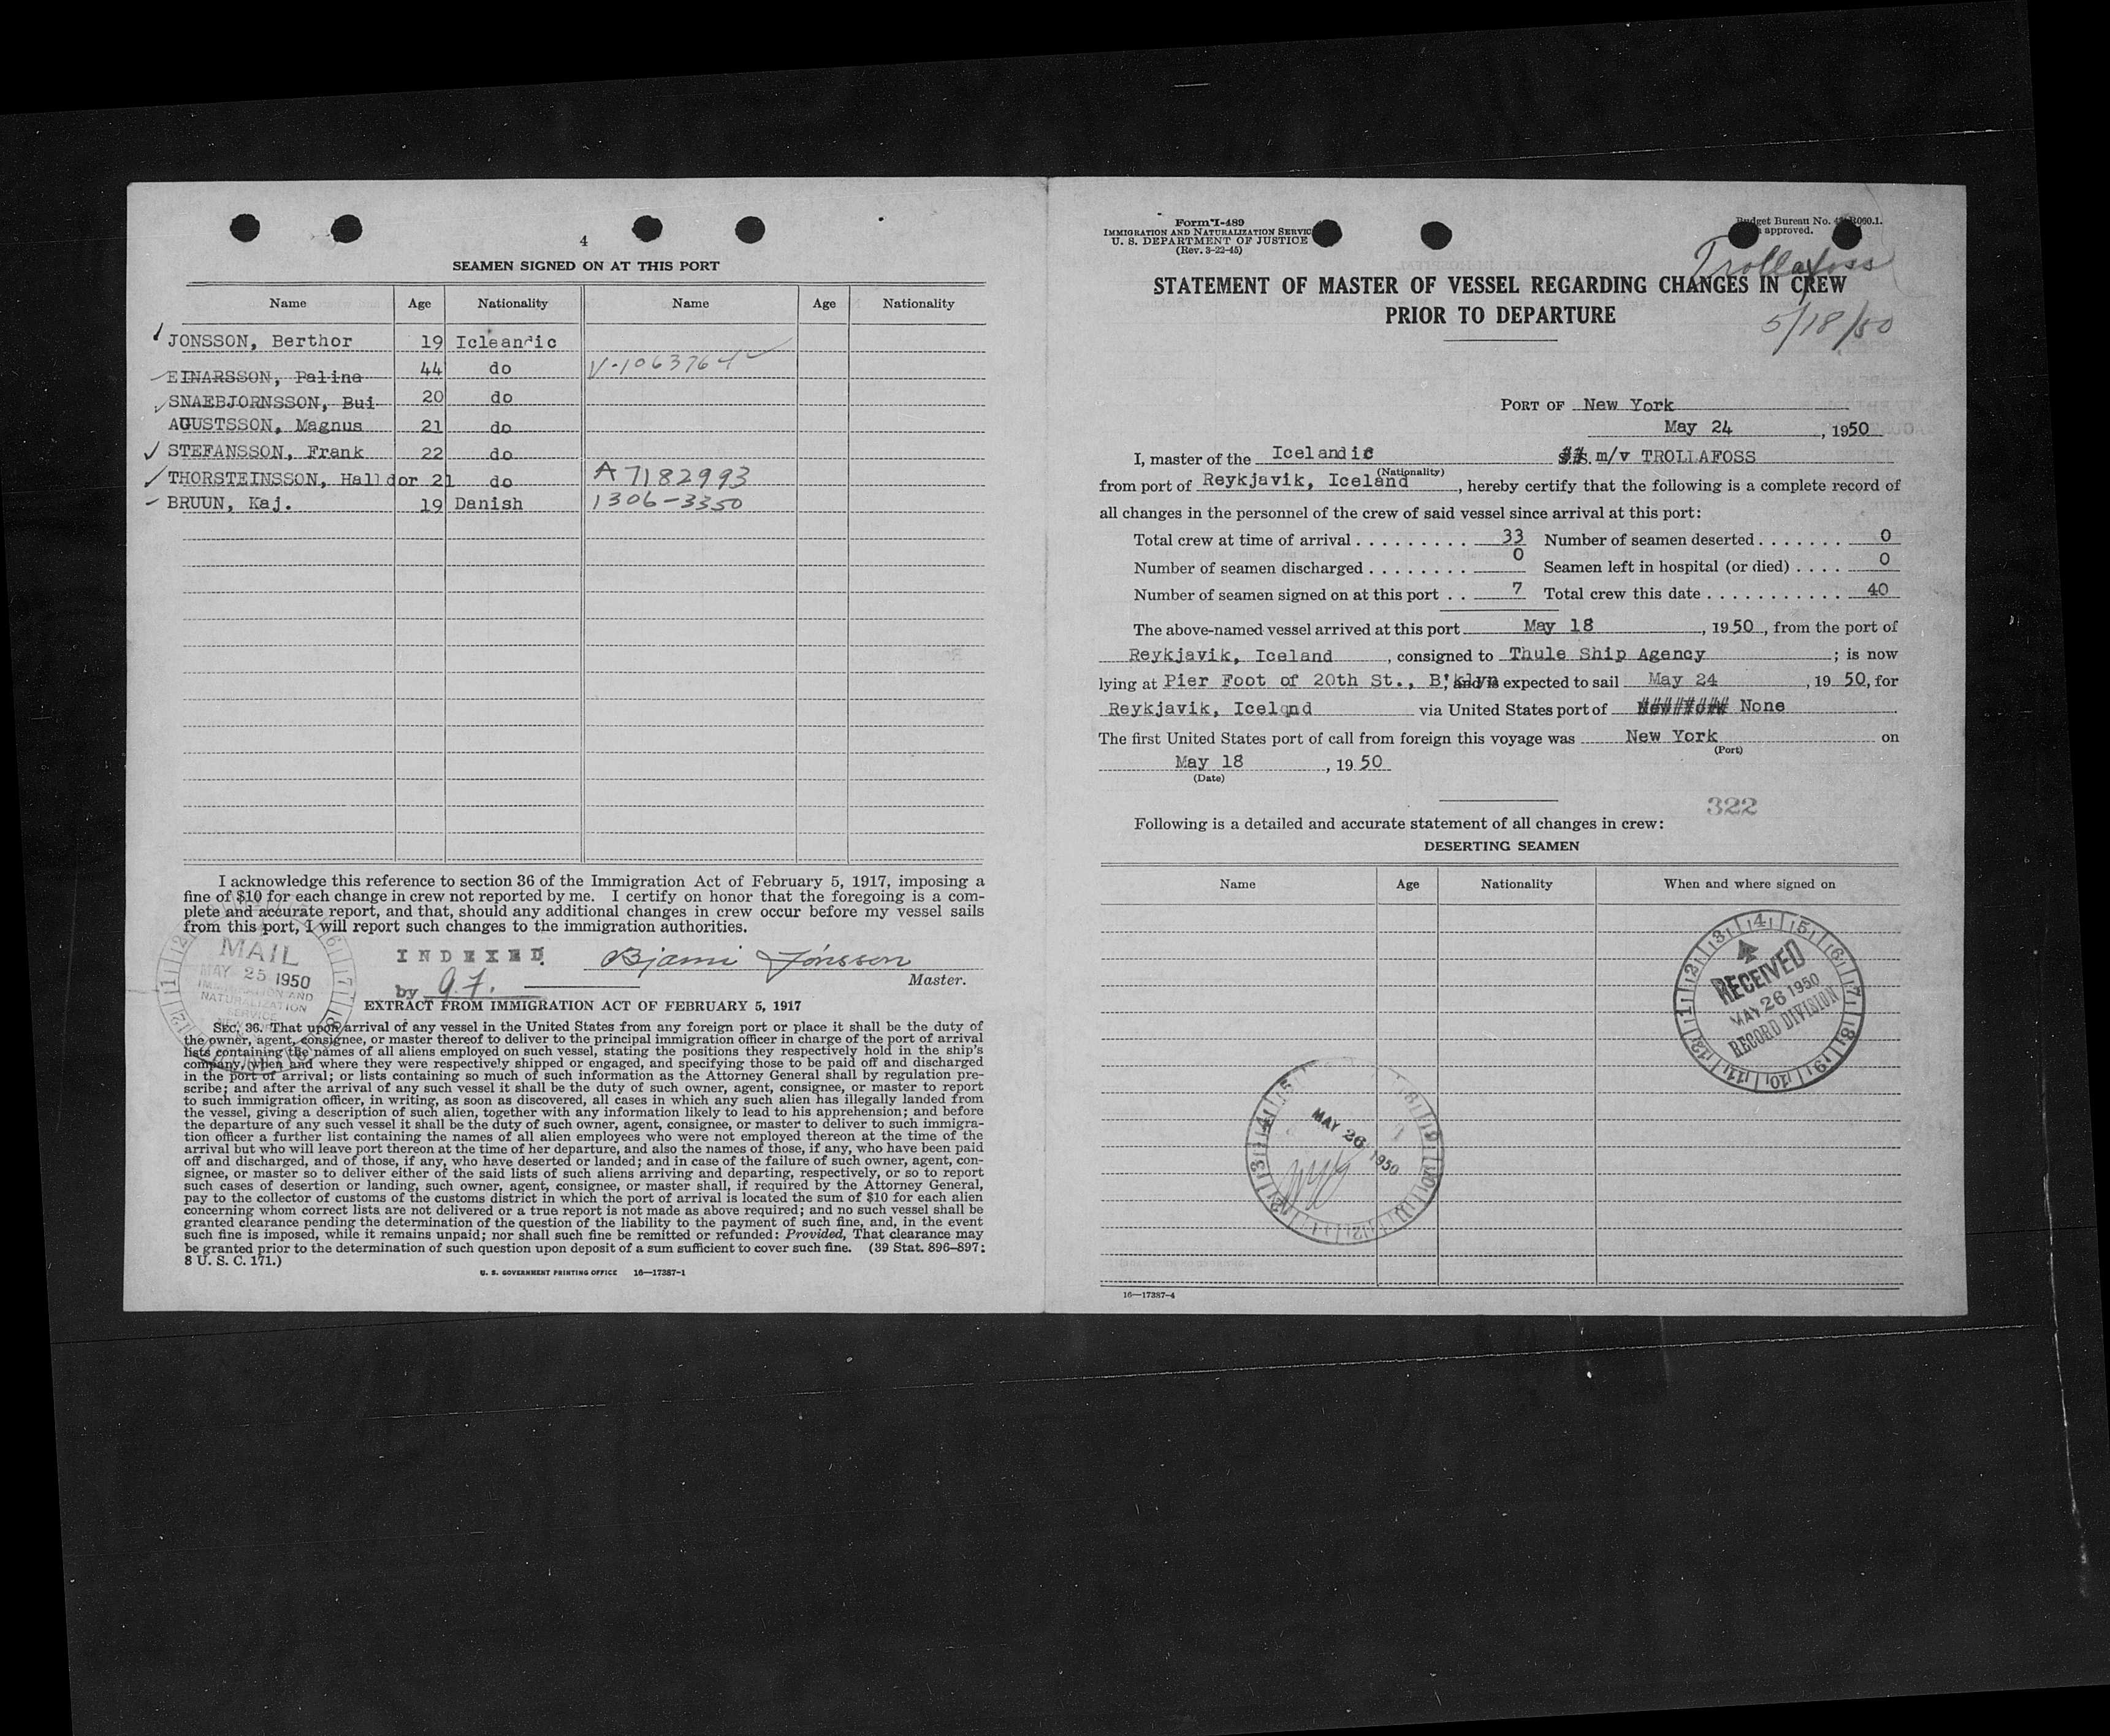 4
SEAMEN SIGNED ON AT THIS PORT
Name Age Nationality Name Age Nationality
JONSSON, Berthor 19 Icleandic
EINARSSON, Palina 44 do V-1063764
SNAEBJORNSSON, Bui 20 do
AGUSTSSON, Magnus 21 do
STEFANSSON, Frank 22 do
THORSTEINSSON, Halldor 21 do A7182993
BRUUN, Kaj. 19 Danish 1306-3350
I acknowledge this reference to section 36 of the Immigration Act of February 5, 1917, imposing a
fine of $10 for each change in crew not reported by me. I certify on honor that the foregoing is a com-
plete and accurate report, and that, should any additional changes in crew occur before my vessel sails
from this port, I will report such changes to the immigration authorities.
MAIL
MAY 25 1950
IMMIGRATION AND
NATURALIZATION
SERVICE
INDEXED
by
Bjarni Jónsson
Master.
EXTRACT FROM IMMIGRATION ACT OF FEBRUARY 5, 1917
SEC. 36. That upon arrival of any vessel in the United States from any foreign port or place it shall be the duty of
the owner, agent, consignee, or master thereof to deliver to the principal immigration officer in charge of the port of arrival
lists containing the names of all aliens employed on such vessel, stating the positions they respectively hold in the ship's
company, when and where they were respectively shipped or engaged, and specifying those to be paid off and discharged
in the port of arrival; or lists containing so much of such information as the Attorney General shall by regulation pre-
scribe; and after the arrival of any such vessel it shall be the duty of such owner, agent, consignee, or master to report
to such immigration officer, in writing, as soon as discovered, all cases in which any such alien has illegally landed from
the vessel, giving a description of such alien, together with any information likely to lead to his apprehension; and before
the departure of any such vessel it shall be the duty of such owner, agent, consignee, or master to deliver to such immigra-
tion officer a further list containing the names of all alien employees who were not employed thereon at the time of the
arrival but who will leave port thereon at the time of her departure, and also the names of those, if any, who have been paid
off and discharged, and of those, if any, who have deserted or landed; and in case of the failure of such owner, agent, con-
signee, or master so to deliver either of the said lists of such aliens arriving and departing, respectively, or so to report
such cases of desertion or landing, such owner, agent, consignee, or master shall, if required by the Attorney General,
pay to the collector of customs of the customs district in which the port of arrival is located the sum of $10 for each alien
concerning whom correct lists are not delivered or a true report is not made as above required; and no such vessel shall be
granted clearance pending the determination of the question of the liability to the payment of such fine, and, in the event
such fine is imposed, while it remains unpaid; nor shall such fine be remitted or refunded: Provided, That clearance may
be granted prior to the determination of such question upon deposit of a sum sufficient to cover such fine. (39 Stat. 896–897;
8 U. S. C. 171.)
U. S. GOVERNMENT PRINTING OFFICE 16—17387-1
Form I-489
IMMIGRATION AND NATURALIZATION SERVIC
U. S. DEPARTMENT OF JUSTICE
(Rev. 3-22-45)
Budget Bureau No. 43-R060.1.
approved.
Trollafoss
STATEMENT OF MASTER OF VESSEL REGARDING CHANGES IN CREW
PRIOR TO DEPARTURE
5/18/50
PORT OF New York
May 24, 1950
I, master of the Icelandic m/v TROLLAFOSS
(Nationality)
from port of Reykjavik, Iceland, hereby certify that the following is a complete record of
all changes in the personnel of the crew of said vessel since arrival at this port:
Total crew at time of arrival . . . . . . . . . 33 Number of seamen deserted . . . . . . . 0
Number of seamen discharged . . . . . . . . 0 Seamen left in hospital (or died) . . . . 0
Number of seamen signed on at this port . . 7 Total crew this date . . . . . . . . . . . 40
The above-named vessel arrived at this port May 18, 1950, from the port of
Reykjavik, Iceland, consigned to Thule Ship Agency; is now
lying at Pier Foot of 20th St., B'klyn, and is expected to sail May 24, 1950, for
Reykjavik, Icelqnd via United States port of None
The first United States port of call from foreign this voyage was New York on
(Port)
May 18, 1950
(Date)
322
Following is a detailed and accurate statement of all changes in crew:
DESERTING SEAMEN
Name Age Nationality When and where signed on
RECEIVED
MAY 26 1950
RECORD DIVISION
MAY 26 1950
16—17387-4